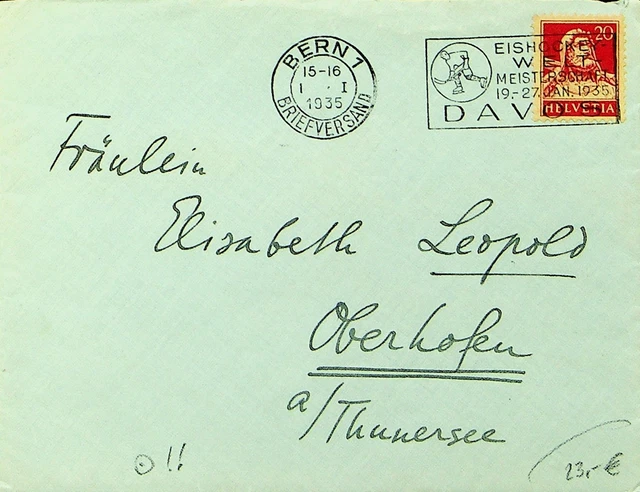 BERN 1
15-16
I · I
1935
BRIEFVERSAND
EISHOCKEY-
WELT
MEISTERSCHAFT
19.-27. JAN. 1935
DAVOS
20
HELVETIA
Fräulein
Elisabeth Leopold
Oberhofen
a/Thunersee
!!
23,- €